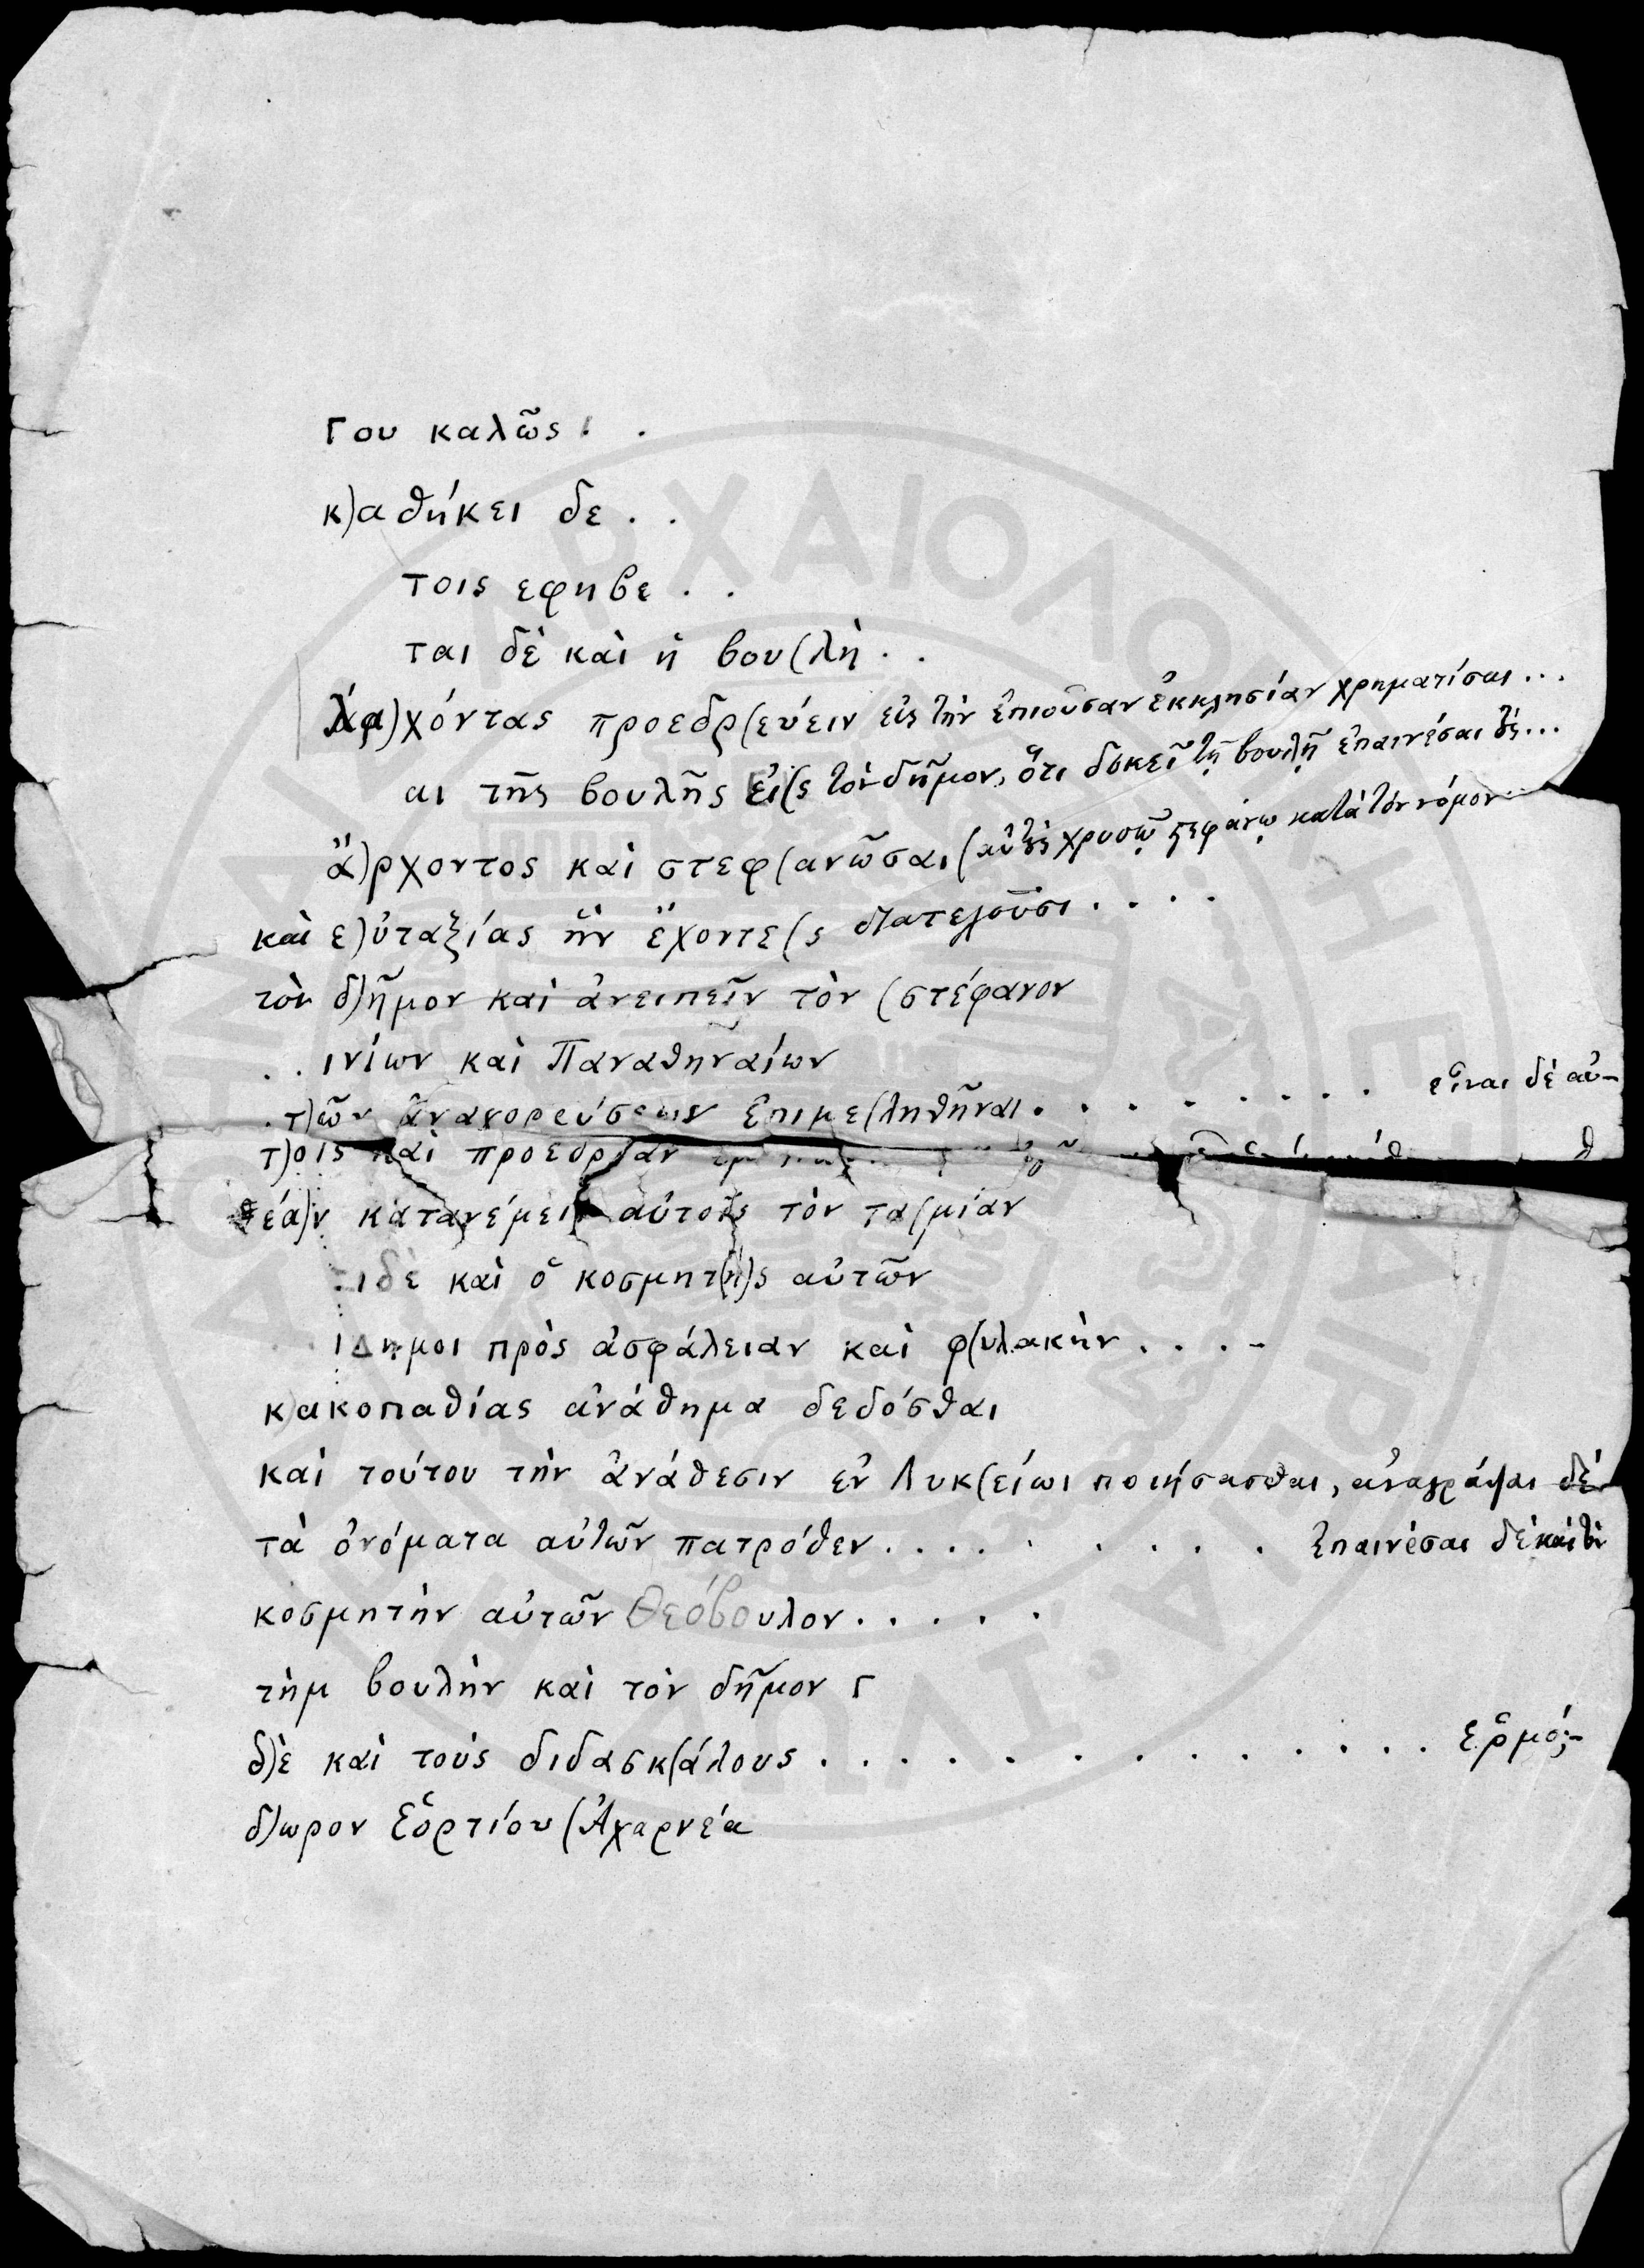 Γου καλῶς . .
κ)αθήκει δε . .
τοις εφηβε . .
ται δὲ καὶ ἡ βου(λὴ . .
λα)χόντας προεδρ(εύειν εἰς τὴν ἐπιοῦσαν ἐκκλησίαν χρηματίσαι ...
αι τῆς βουλῆς εἰ(ς τὸν δῆμον, ὅτι δοκεῖ τῇ βουλῇ ἐπαινέσαι τὲς...
ἄ)ρχοντος καὶ στεφ(ανῶσαι (αὐτὲς χρυσῷ στεφάνῳ κατὰ τὸν νόμον
καὶ ε)ὐταξίας ἣν ἔχοντε(ς διατελοῦσι . . . .
τὸν δ)ῆμον καὶ ἀνειπεῖν τὸν (στέφανον
. . ινίων καὶ Παναθηναίων
. τ)ῶν ἀναγορεύσεων ἐπιμε(ληθῆναι . . . . . . . . . εἶναι δὲ αὐ-
τ)οῖς καὶ προεδρίαν
θέα)ν κατανέμει αὐτοῖς τὸν τα(μίαν
ιδε καὶ ὁ κοσμητ(ὴ)ς αὐτῶν
ιΔημοι πρὸς ἀσφάλειαν καὶ φ(υλακὴν . . . -
κ)ακοπαθίας ἀνάθημα δεδόσθαι
καὶ τούτου τὴν ἀνάθεσιν ἐν Λυκ(είωι ποιήσασθαι, ἀναγράψαι δὲ
τὰ ὀνόματα αὐτῶν πατρόθεν . . . . . . . . . ἐπαινέσαι δὲ καὶ τὸν
κοσμητὴν αὐτῶν Θεόβουλον . . . . .
τὴμ βουλὴν καὶ τὸν δῆμον Γ
δ)ὲ καὶ τοὺς διδασκ(άλους . . . . . . . . . . . . Ἑρμό-
δ)ωρον Ἑορτίου (Ἀχαρνέα